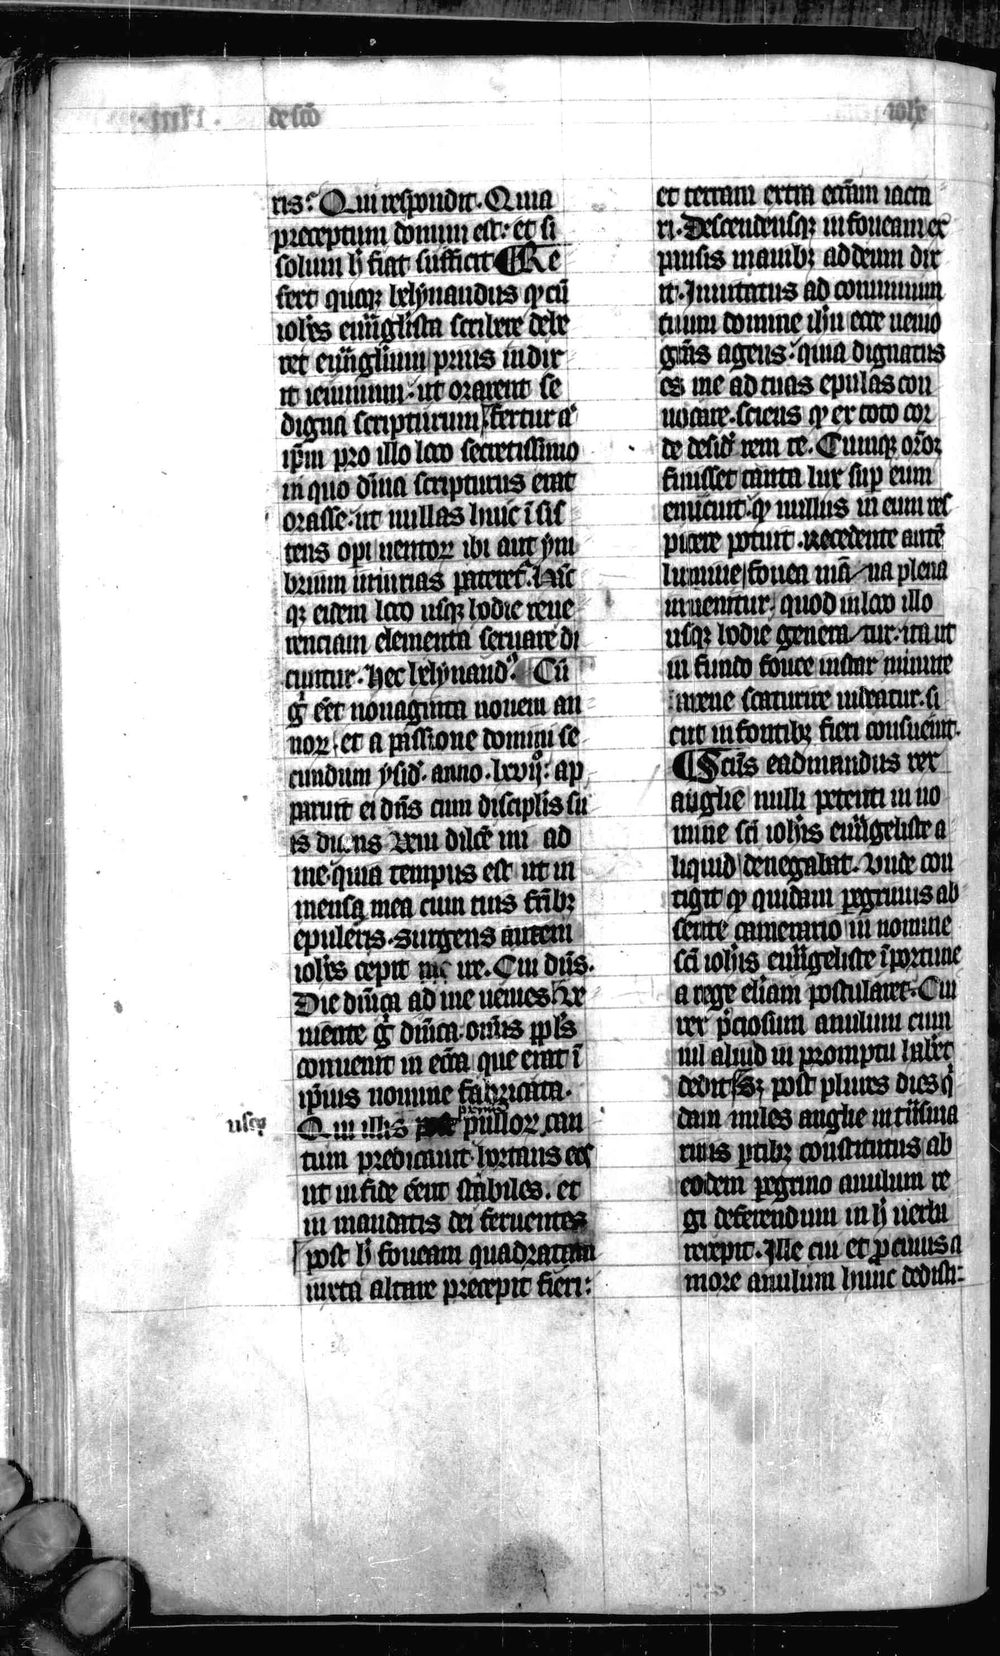 de scō
ioh̄e
ris? Qui respondit. Quia
preceptum domini est: et si
solum h̄ fiat sufficit Re
fert quoq; helynandus q̄ cū
ioh̄es euūglista scribere debe
ret euūglium prius indix
it ieiunium. ut orarent se
digna scripturum fertur aͭ
ip̄m pro illo loco secretissimo
in quo diīna scripturus erat
orasse. ut nullas huic ī sis
tens opi uentoꝝ ibi aut ym
brium iniurias pateretᷣ. Hūc
q; eidem loco usq; hodie reue
renciam elementa seruare di
cuntur. hec helynandꝰ. Cū
gͥ eēt nonaginta nouem an
noꝝ. et a passione domini se
cundum ysid̄. anno. lxvijͦ: ap
paruit ei dn̄s cum discip̄lis su
is dicens Veni dilcē mi ad
me quia tempus est ut in
mensa mea cum tuis fr̄ibꝫ
epuleris. Surgens autem
ioh̄es cepit ire. Cui dn̄s.
Die dn̄ica ad me uenies. Ve
niente gͥ dn̄ica. om̄is pp̄ls
conuenit in ecc̄ia que erat ī
ip̄ius nomine fabricata.
primo
usq;
Qui illis pulloꝝ can
tum predicauit hortans eos
ut in fide eēnt stabiles. et
in mandatis dei feruentes
post h̄ foueam quadratam
iuxta altare precepit fieri:
et terram extra ecc̄iam iacta
ri. Descendensq; in foueam ex
pansis manibꝫ ad deum dix
it. Inuitatus ad conuiuium
tuum domine ih̄u ecce uenio
gr̄as agens. quia dignatus
es me ad tuas epulas con
uocare. sciens q̄ ex toto cor
de desid̄ rem te. Cumq; or̄oꝫ
finisset tanta lux sup eum
emicuit. q̄ nullus in eum res
picere potuit. Recedente autē
lumine fouea mā na plena
inuenitur. quod in loco illo
usq; hodie genera tur. ita ut
in fundo fouee instar minute
arene scaturire uideatur. si
cut in fontibꝫ fieri consueuit.
Scūs eadmundus rex
anglie nulli petenti in no
mine scī ioh̄is euūgeliste a
liquid denegabat. Vnde con
tigit q̄ quidam peregrinus ab
sente camerario in nomine
scī ioh̄is euūgeliste īportune
a rege elīam postularet. Cui
rex p̄ciosum anulum cum
nil aliud in promptu haberet
dedit. Sꝫ post plures dies qͥ
dam miles anglie in t̄nsma
rinis p̄tibꝫ constitutus ab
eodem peregrino anulum re
gi deferendum in h̄ uerba
recepit. Ille cui et p̄ cuius a
more anulum hunc dedisti: